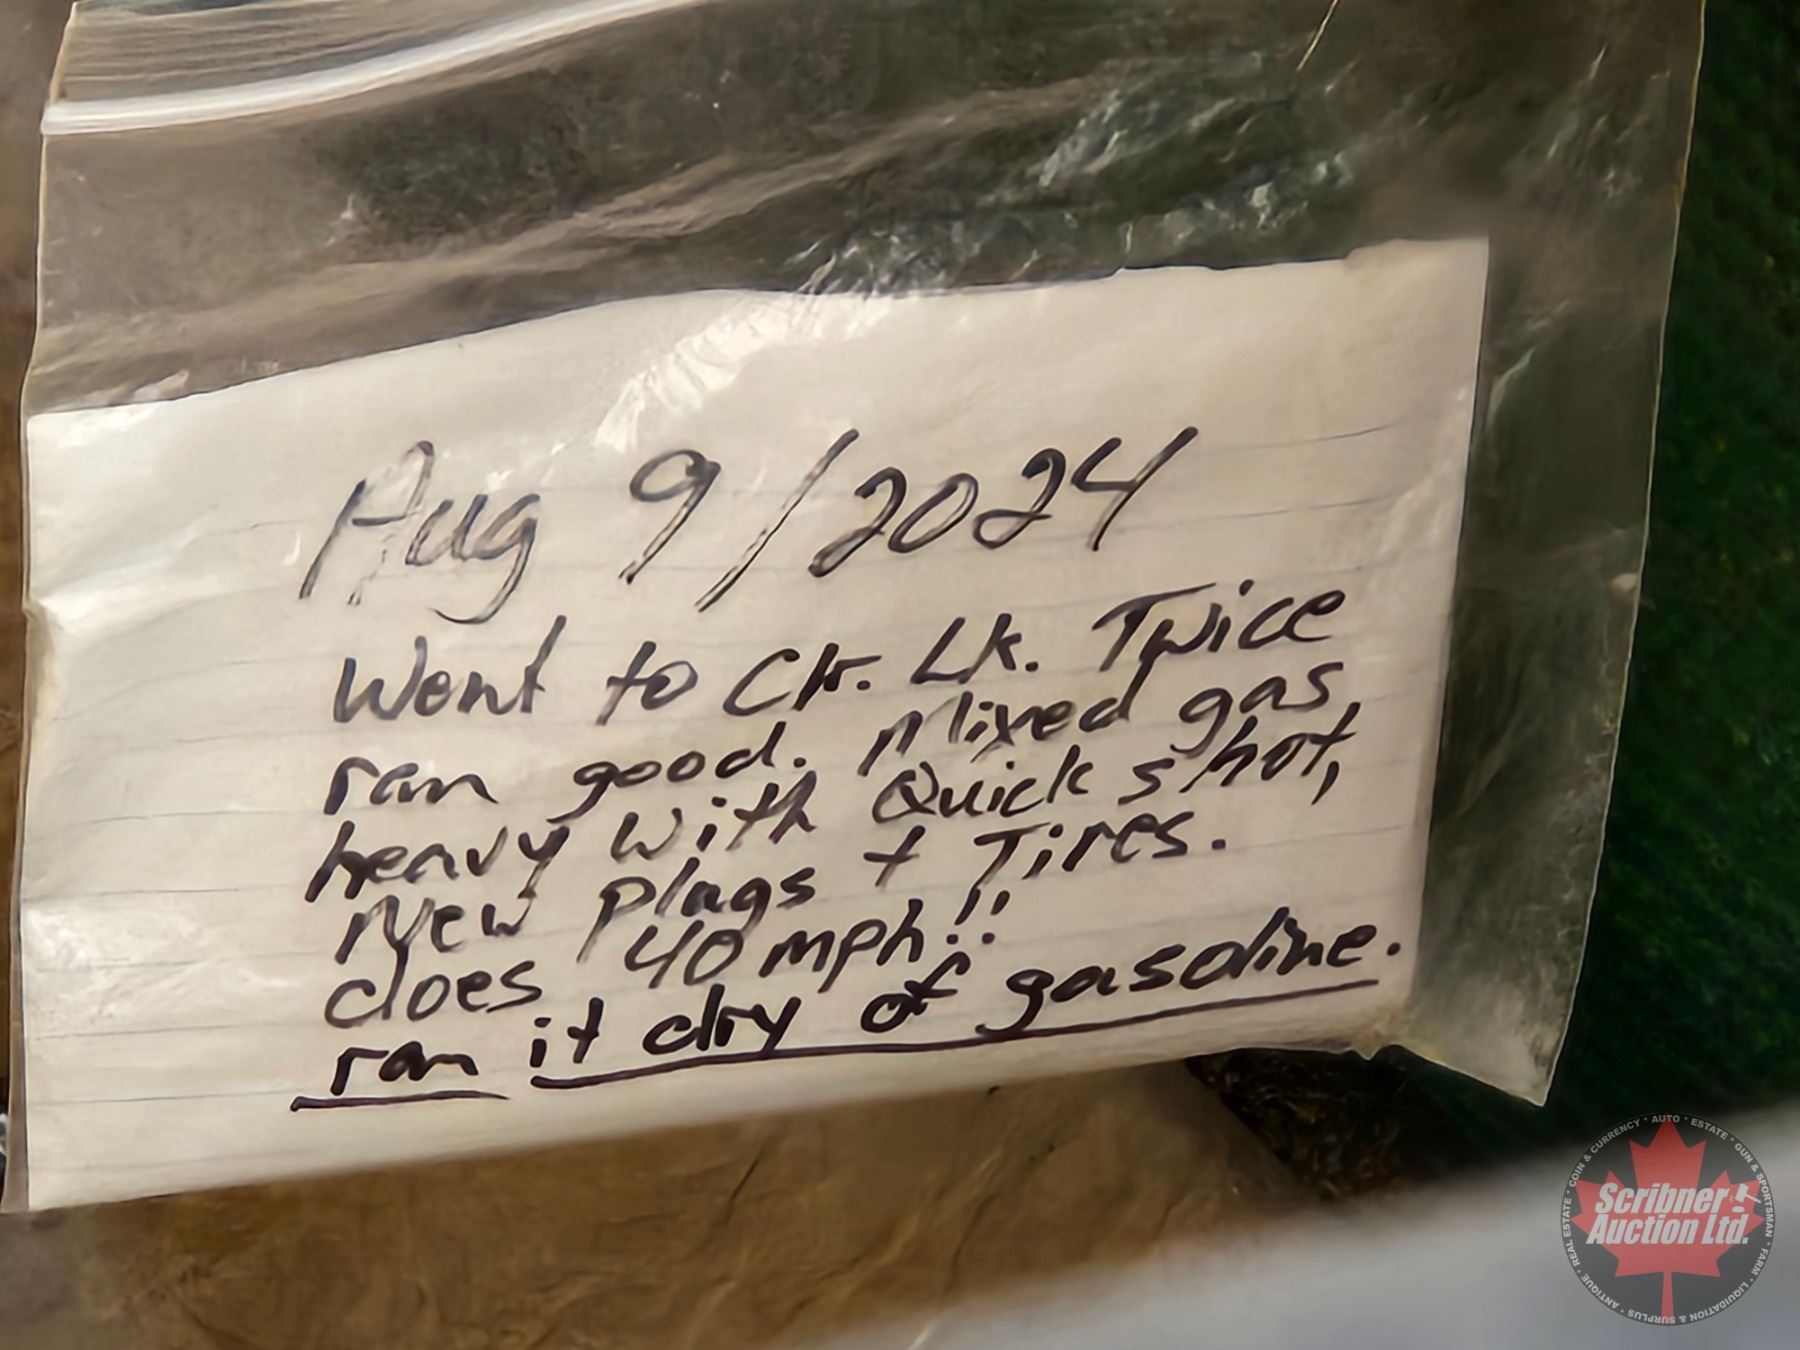 Aug 9/2024
Went to Clr. Lk. Twice
ran good. Mixed gas,
heavy with Quick shot,
New plugs + Tires.
does 40 mph!!
ran it dry of gasoline.
Scribner
Auction Ltd.
COIN & CURRENCY • AUTO • ESTATE • GUN & SPORTSMAN • FARM • LIQUIDATION & SURPLUS • ANTIQUE • REAL ESTATE •